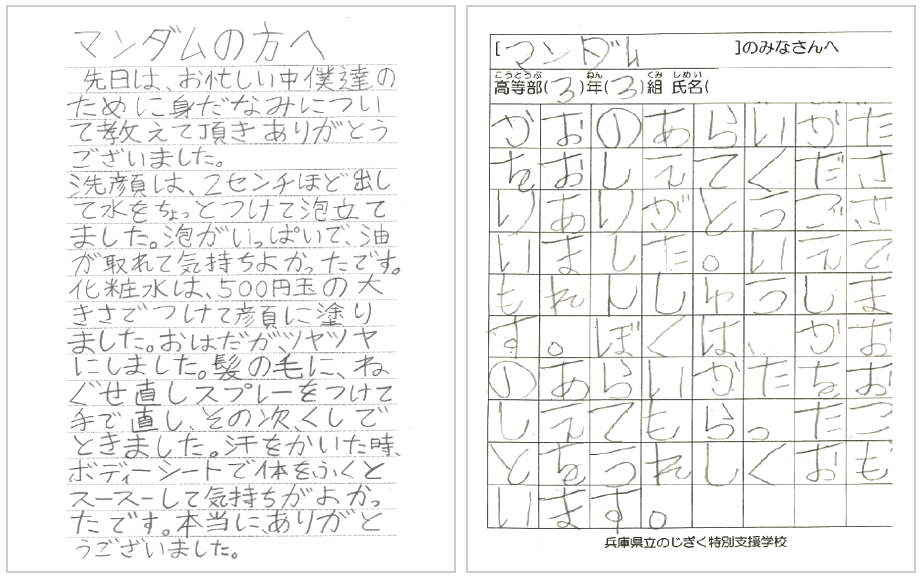 マンダムの方へ
先日は、お忙しい中僕達の
ために身だなみについ
て教えて頂きありがとう
ございました。
洗顔は、2センチほど出し
て水をちょっとつけて泡立て
ました。泡がいっぱいで、油
が取れて気持ちよかったです。
化粧水は、500円玉の大
きさでつけて顔に塗り
ました。おはだがツヤツヤ
にしました。髪の毛に、ね
ぐせ直しスプレーをつけて
手で直し、その次、くしで
ときました。汗をかいた時、
ボディーシートで体をふくと
スースーして気持ちがよかっ
たです。本当に、ありがと
うございました。
[マンダム]のみなさんへ
こうとうぶ ねん くみ しめい
高等部(3)年(3)組 氏名(
かおのあらいかた
をおしえてくださ
りありがとうござ
いました。いえで
もれんしゅうしま
す。ぼくは、かお
のあらいかたをお
しえてもらったこ
とをうれしくおも
います。
兵庫県立のじぎく特別支援学校